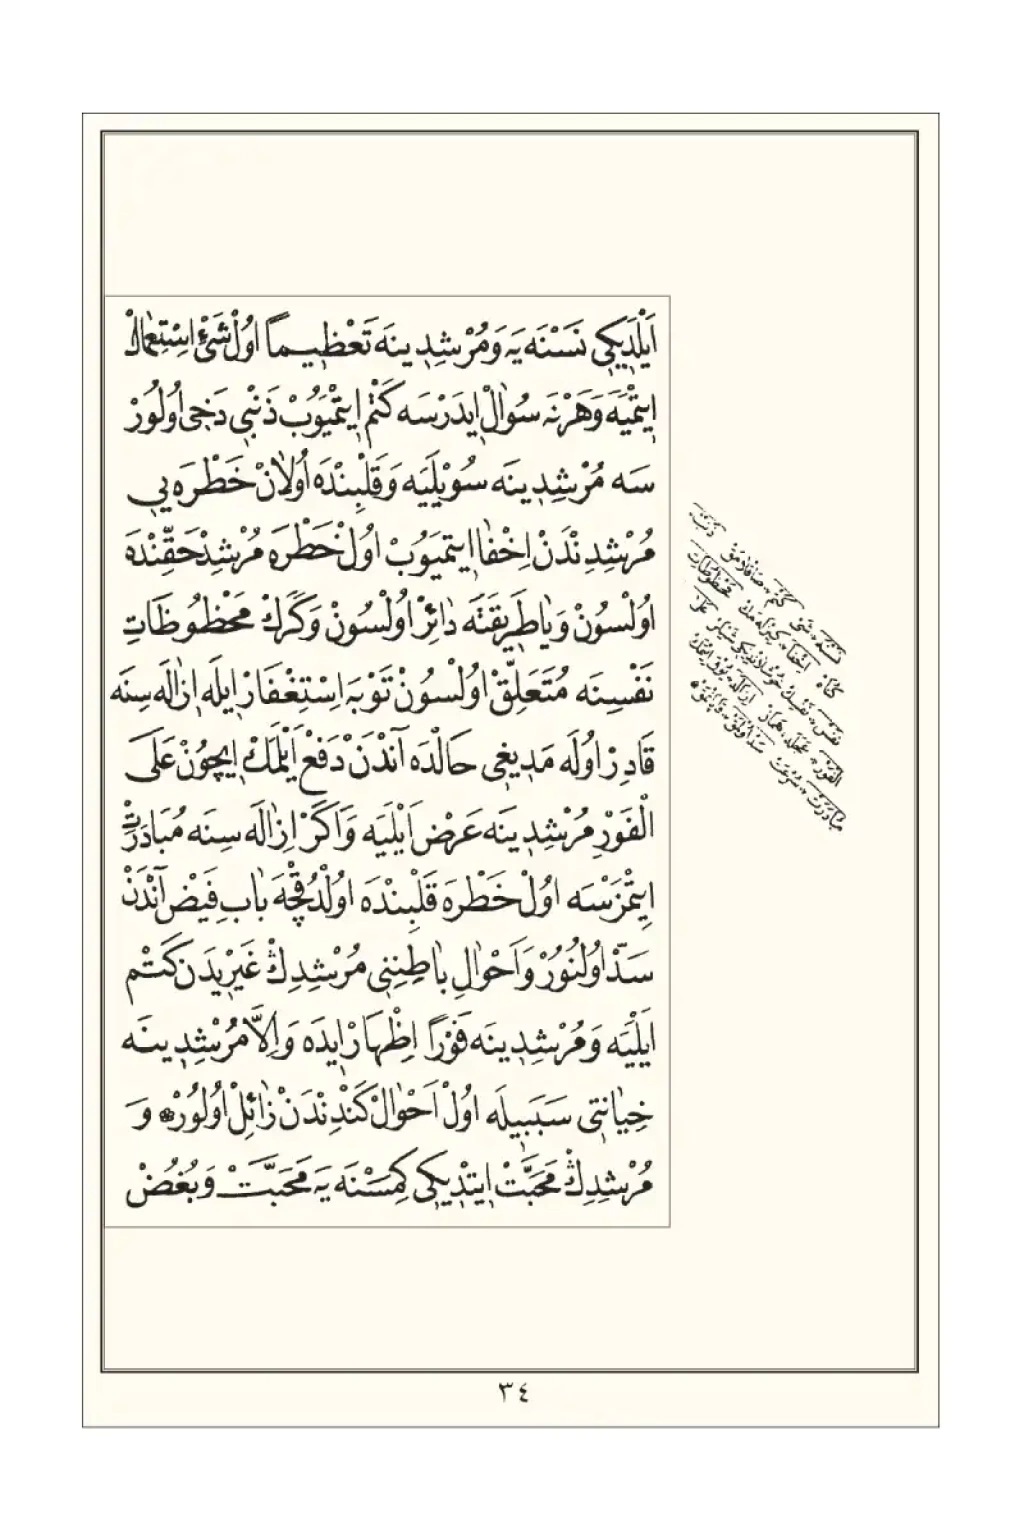 اَيْلَدِيكِي نَسْنَه يَه وَمُرْشِدِينَه تَعْظِيماً اُولْ شَيْئِ اسْتِعْمَالْ
اِيتْمِيَه وَهَرْنَه سُوَالْ اِيدَرْسَه كَتْم اِيتْمَيُوبْ ذَنْبِي دَخِي اُولُورْ
سَه مُرْشِدِينَه سُويْلِيَه وَقَلْبِنْدَه اُولَانْ خَطْرَه يِي
مُرْشِدِنْدَنْ اِخْفَا اِيتْمَيُوبْ اُولْ خَطْرَه مُرْشِدْ حَقِّنْدَه
اُولْسُونْ وَيَا طَرِيقَتَه دَائِرْ اُولْسُونْ وَكَرَكْ مَحْظُوظَاتِ
نَفْسِنَه مُتَعَلِّقْ اُولْسُونْ تَوْبَه اِسْتِغْفَارْ اِيلَه اِزَالَه سِنَه
قَادِرْ اُولَه مَدِيغِي حَالْدَه آنْدَنْ دَفْعْ اَيْلَمَكْ اِيچُونْ عَلَى
الْفَوْرِ مُرْشِدِينَه عَرْض اَيْلِيَه وَاَكَرْ اِزَالَه سِنَه مُبَادَرَتْ
اِيتْمَزْسَه اُولْ خَطْرَه قَلْبِنْدَه اُولْدُقْچَه بَابِ فَيْض آنْدَنْ
سَدّ اُولُنُورْ وَاَحْوَالِ بَاطِنِنِي مُرْشِدِكْ غَيْرِيدَنْ كَتْم
اَيْلِيَه وَمُرْشِدِينَه فَوْراً اِظْهَارْ اِيدَه وَاِلاَّ مُرْشِدِينَه
خِيَانَتِي سَبَبِيلَه اُولْ اَحْوَالْ كَنْدِنْدَنْ زَائِلْ اُولُورْ ۞ وَ
مُرْشِدِكْ مَحَبَّتْ اِيتْدِيكِي كِمَسْنَه يَه مَحَبَّتْ وَبُغُضْ
٣٤